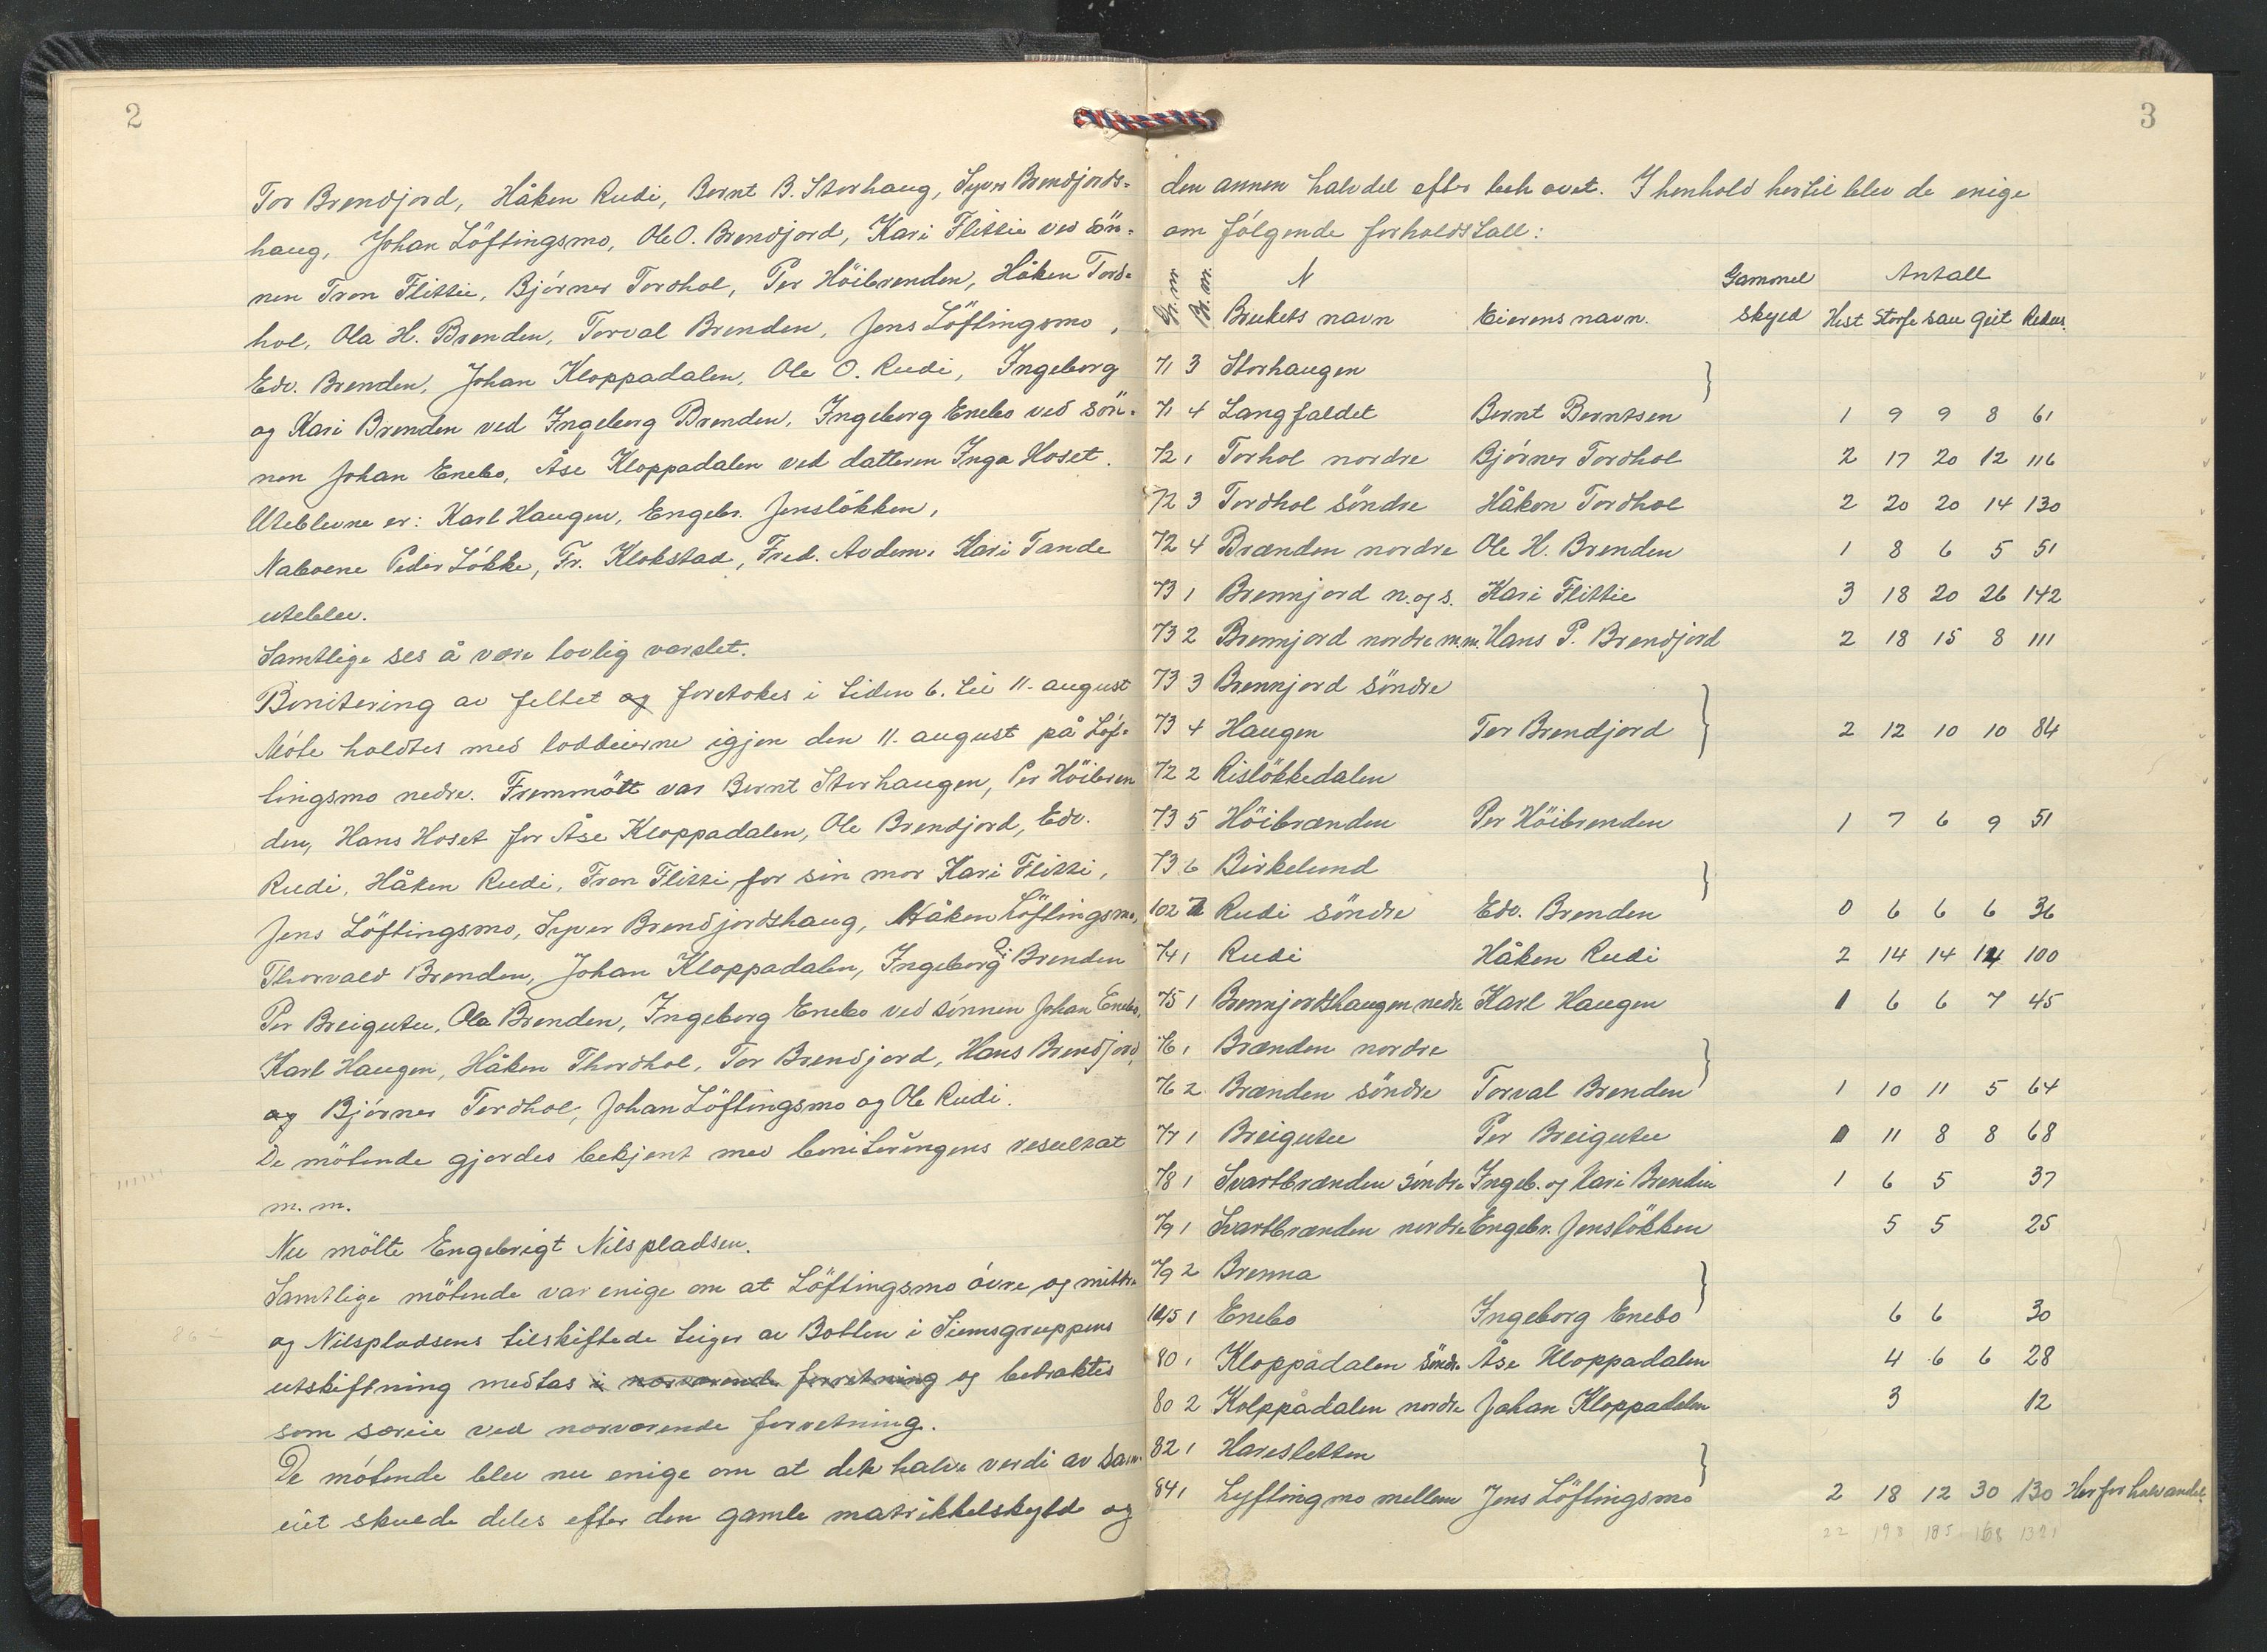 2
Tor Brendjord, Håken Rudi, Bernt B. Storhaug, Syver Brendjords-
haug, Johan Löftingsmo, Ole O. Brendjord, Kari Flittie ved sön-
nen Tron Flittie, Björner Tordhol, Per Höibrenden, Håken Tord-
hol, Ola H. Brenden, Torval Brenden, Jens Löftingsmo,
Edv. Brenden, Johan Kloppadalen, Ole O. Rudi, Ingeborg
og Kari Brenden ved Ingeborg Brenden, Ingeborg Enebo ved sön-
nen Johan Enebo, Åse Kloppadalen ved datteren Inga Hoset.
Uteblevne er: Karl Haugen, Engebr. Jenslökken,
Naboene Peder Lökke, Fr. Klokstad, Fred. Avdem, Kari Tande
uteblev.
Samtlige ses å være lovlig varslet.
Bonitering av feltet og foretokes i tiden 6. til 11. august
Möte holdtes med loddeierne igjen den 11. august på Löf-
tingsmo nedre. Fremmött var Bernt Storhaugen, Per Höibren
den, Hans Hoset for Åse Kloppadalen, Ole Brendjord, Edv.
Rudi, Håken Rudi, Tron Flitti for sin mor Kari Flitti,
Jens Löftingsmo, Syver Brendjordshaug, Håken Löftingsmo,
Thorvald Brenden, Johan Kloppadalen, Ingeborg Brenden
Per Breigutu, Ola Brenden, Ingeborg Enebo ved sönnen Johan Enebo,
Karl Haugen, Håken Thordhol, Tor Brendjord, Hans Brendjord,
og Björner Tordhol, Johan Löftingsmo og Ole Rudi.
De mötende gjordes bekjent med boniteringens resultat
m. m.
Nu mötte Engebrigt Nilspladsen.
Samtlige mötende var enige om at Löftingsmo övre og mittre
og Nilspladsens tilskiftede teiger av Botten i Siemsgruppens
utskiftning medtas i nærværende forretning og betraktes
som særeie ved nærværende forretning.
De mötende blev nu enige om at dets halve verdi av sam-
eiet skulde deles efter den gamle matrikkelskyld og
3
den annen halvdel efter behovet. I henhold hertil blev de enige
om fölgende forholdstall:
Gammel Antall
Gr. nr. Br. nr. Brukets navn Eierens navn. Skyld Hest Storfe sau geit Redus.
71 3 Storhaugen
71 4 Langfaldet Bernt Berntsen 1 9 9 8 61
72 1 Torhol nordre Björner Tordhol 2 17 20 12 116
72 3 Tordhol söndre Håken Tordhol 2 20 20 14 130
72 4 Brænden nordre Ole H. Brenden 1 8 6 5 51
73 1 Brennjord n. og s. Kari Flittie 3 18 20 26 142
73 2 Brennjord nordre m.m. Hans P. Brendjord 2 18 15 8 111
73 3 Brennjord söndre
73 4 Haugen Tor Brendjord 2 12 10 10 84
72 2 Rislökkedalen
73 5 Höibrænden Per Höibrenden 1 7 6 9 51
73 6 Birkelund
102 Rudi söndre Edv. Brenden 0 6 6 6 36
74 1 Rudi Håken Rudi 2 14 14 14 100
75 1 Brennjordshaugen nedre Karl Haugen 1 6 6 7 45
76 1 Brænden nordre
76 2 Brænden söndre Torval Brenden 1 10 11 5 64
77 1 Breigutu Per Breigutu 11 8 8 68
78 1 Svartbrænden söndre Ingeb. og Kari Brenden 1 6 5 37
79 1 Svartbrænden nordre Engebr. Jenslökken 5 5 25
79 2 Brenna
105 1 Enebo Ingeborg Enebo 6 6 30
80 1 Kloppådalen söndre Åse Kloppadalen 4 6 6 28
80 2 Kolppådalen nordre Johan Kloppadalen 3 12
82 1 Hareslettten
84 1 Lyftingmo mellem Jens Löftingsmo 2 18 12 30 130 Her for halvandel
22 198 185 168 1321